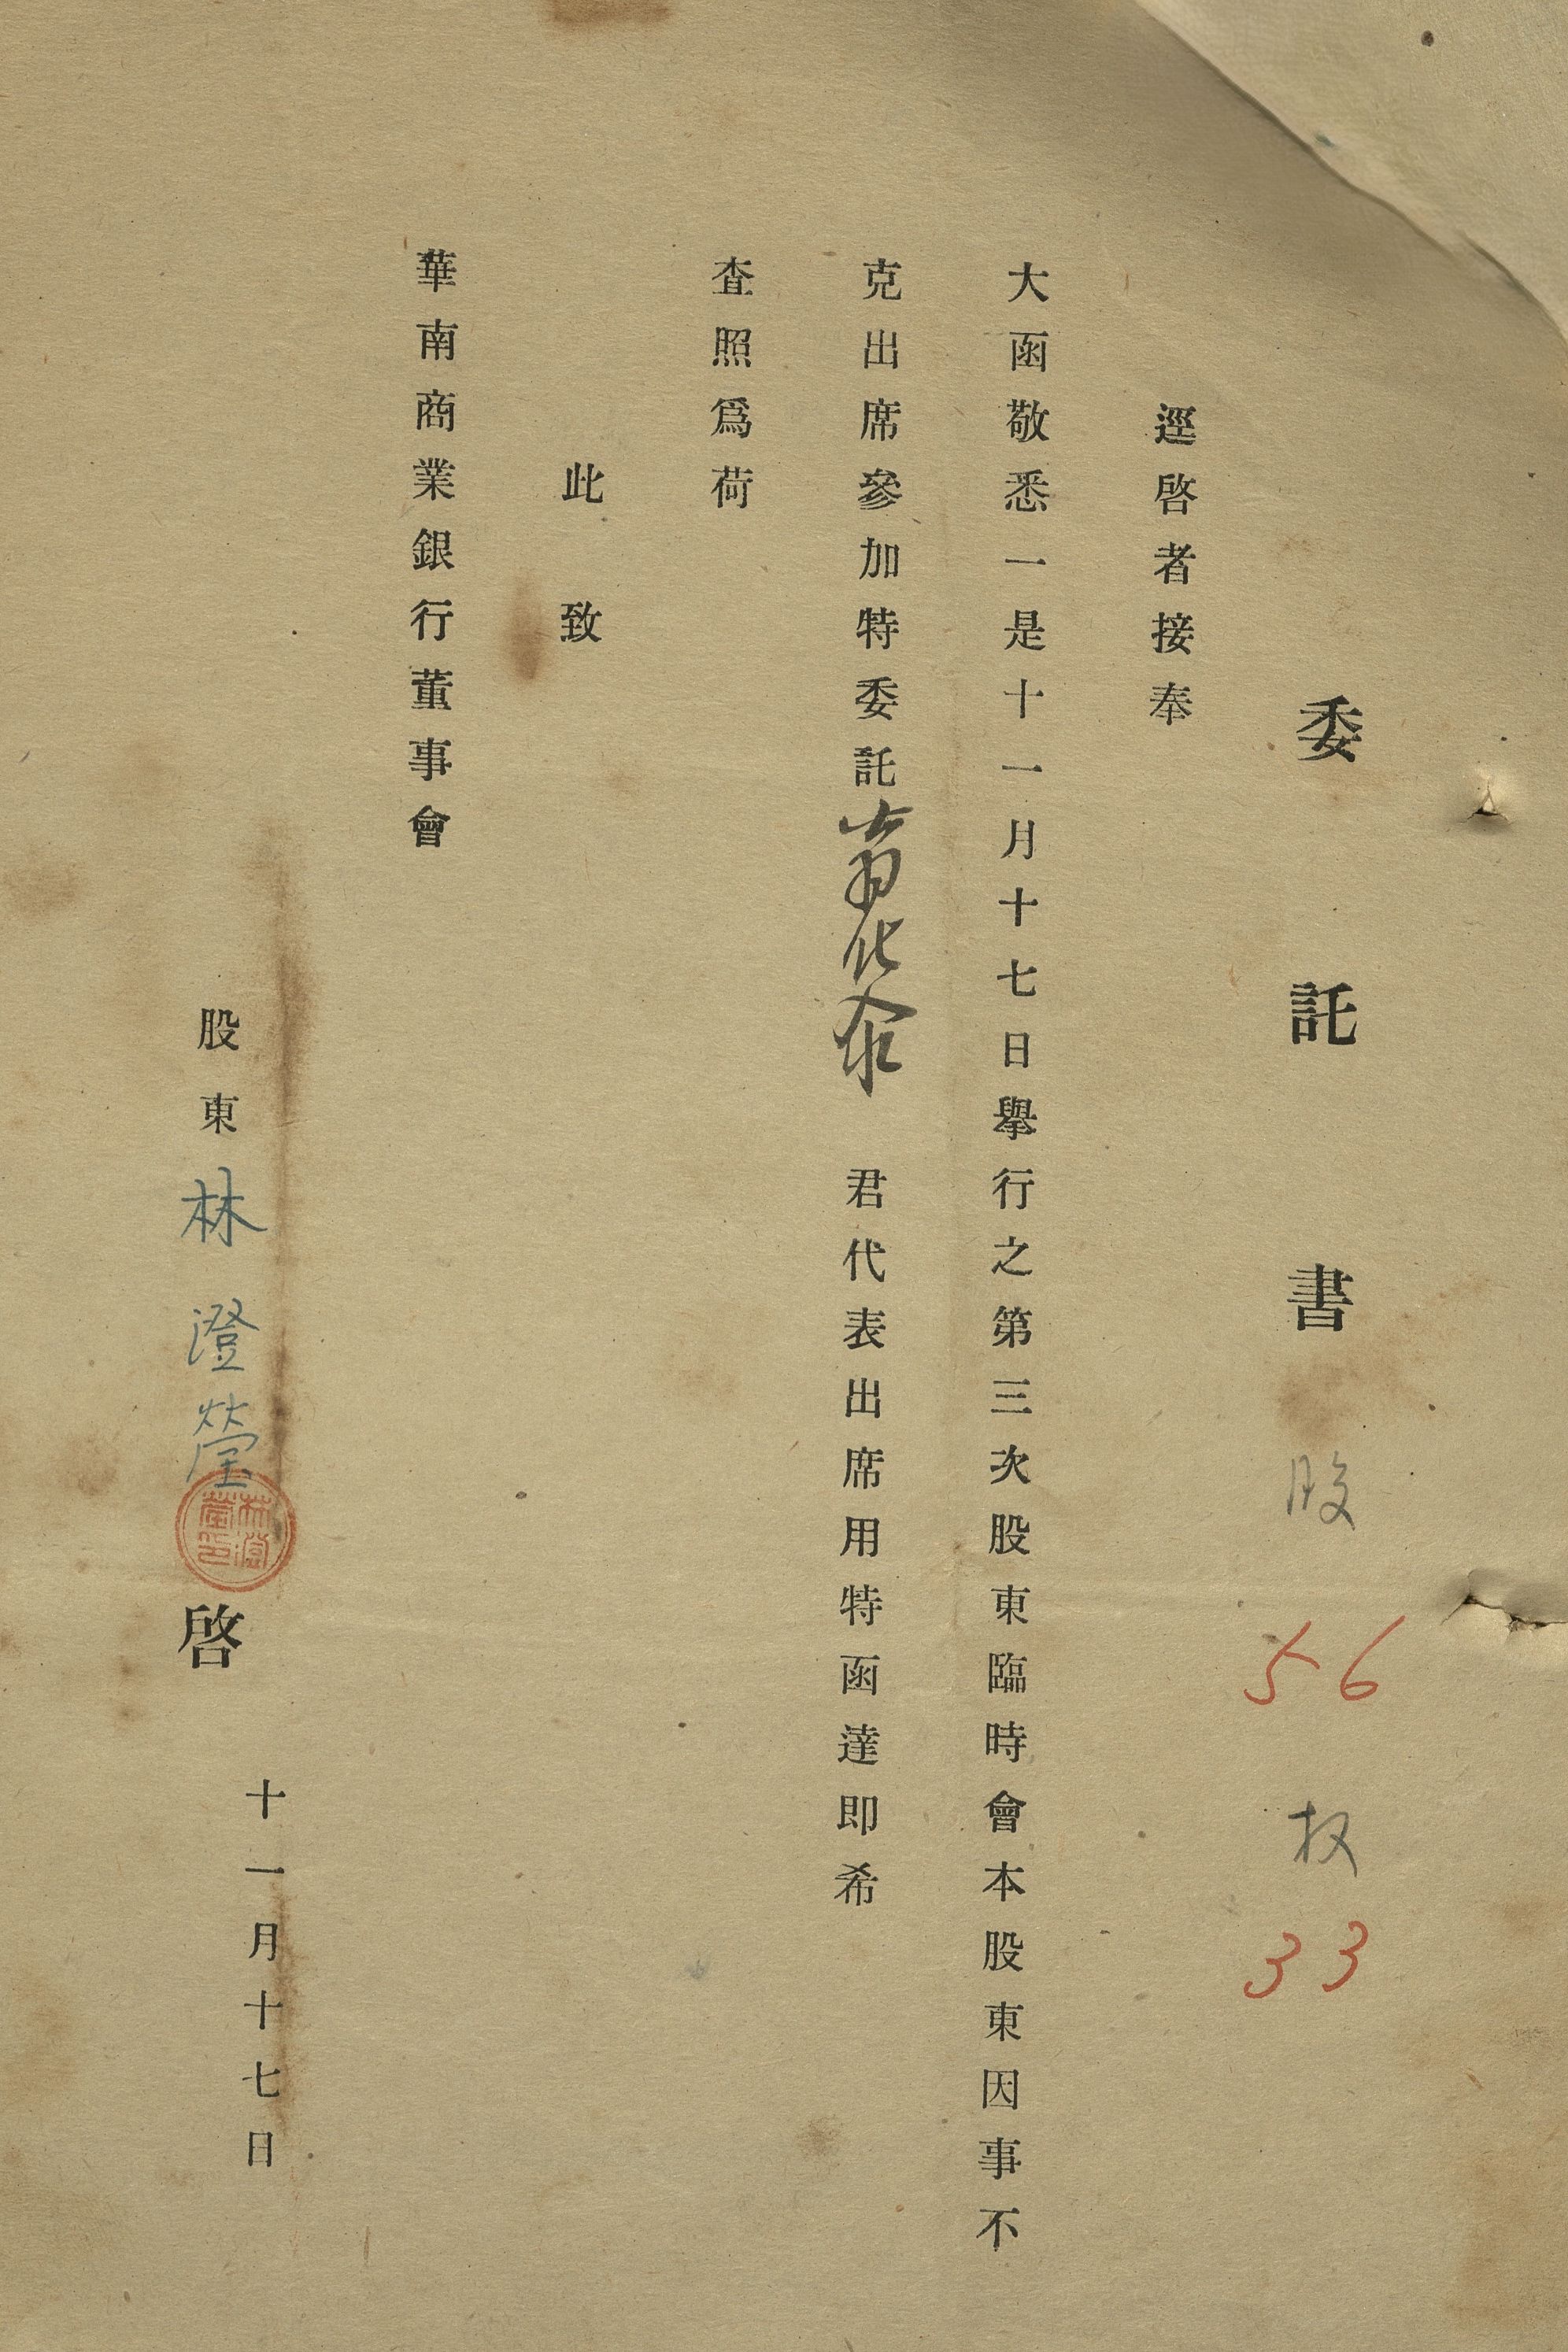 委託書 股 56 权 33
逕啓者接奉
大函敬悉一是十一月十七日舉行之第三次股東臨時會本股東因事不
克出席參加特委託 君代表出席用特函達即希
查照爲荷
此致
華南商業銀行董事會
股東 林澄瑩 啓
林澄瑩印
十一月十七日